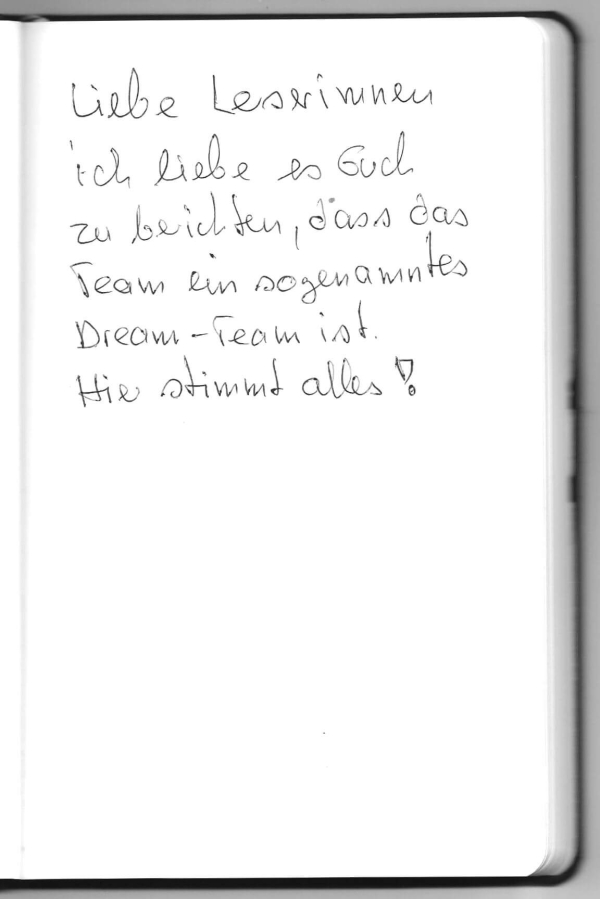 Liebe Leserinnen
ich liebe es Euch
zu beichten, dass das
Team ein sogenanntes
Dream-Team ist.
Hie stimmt alles!